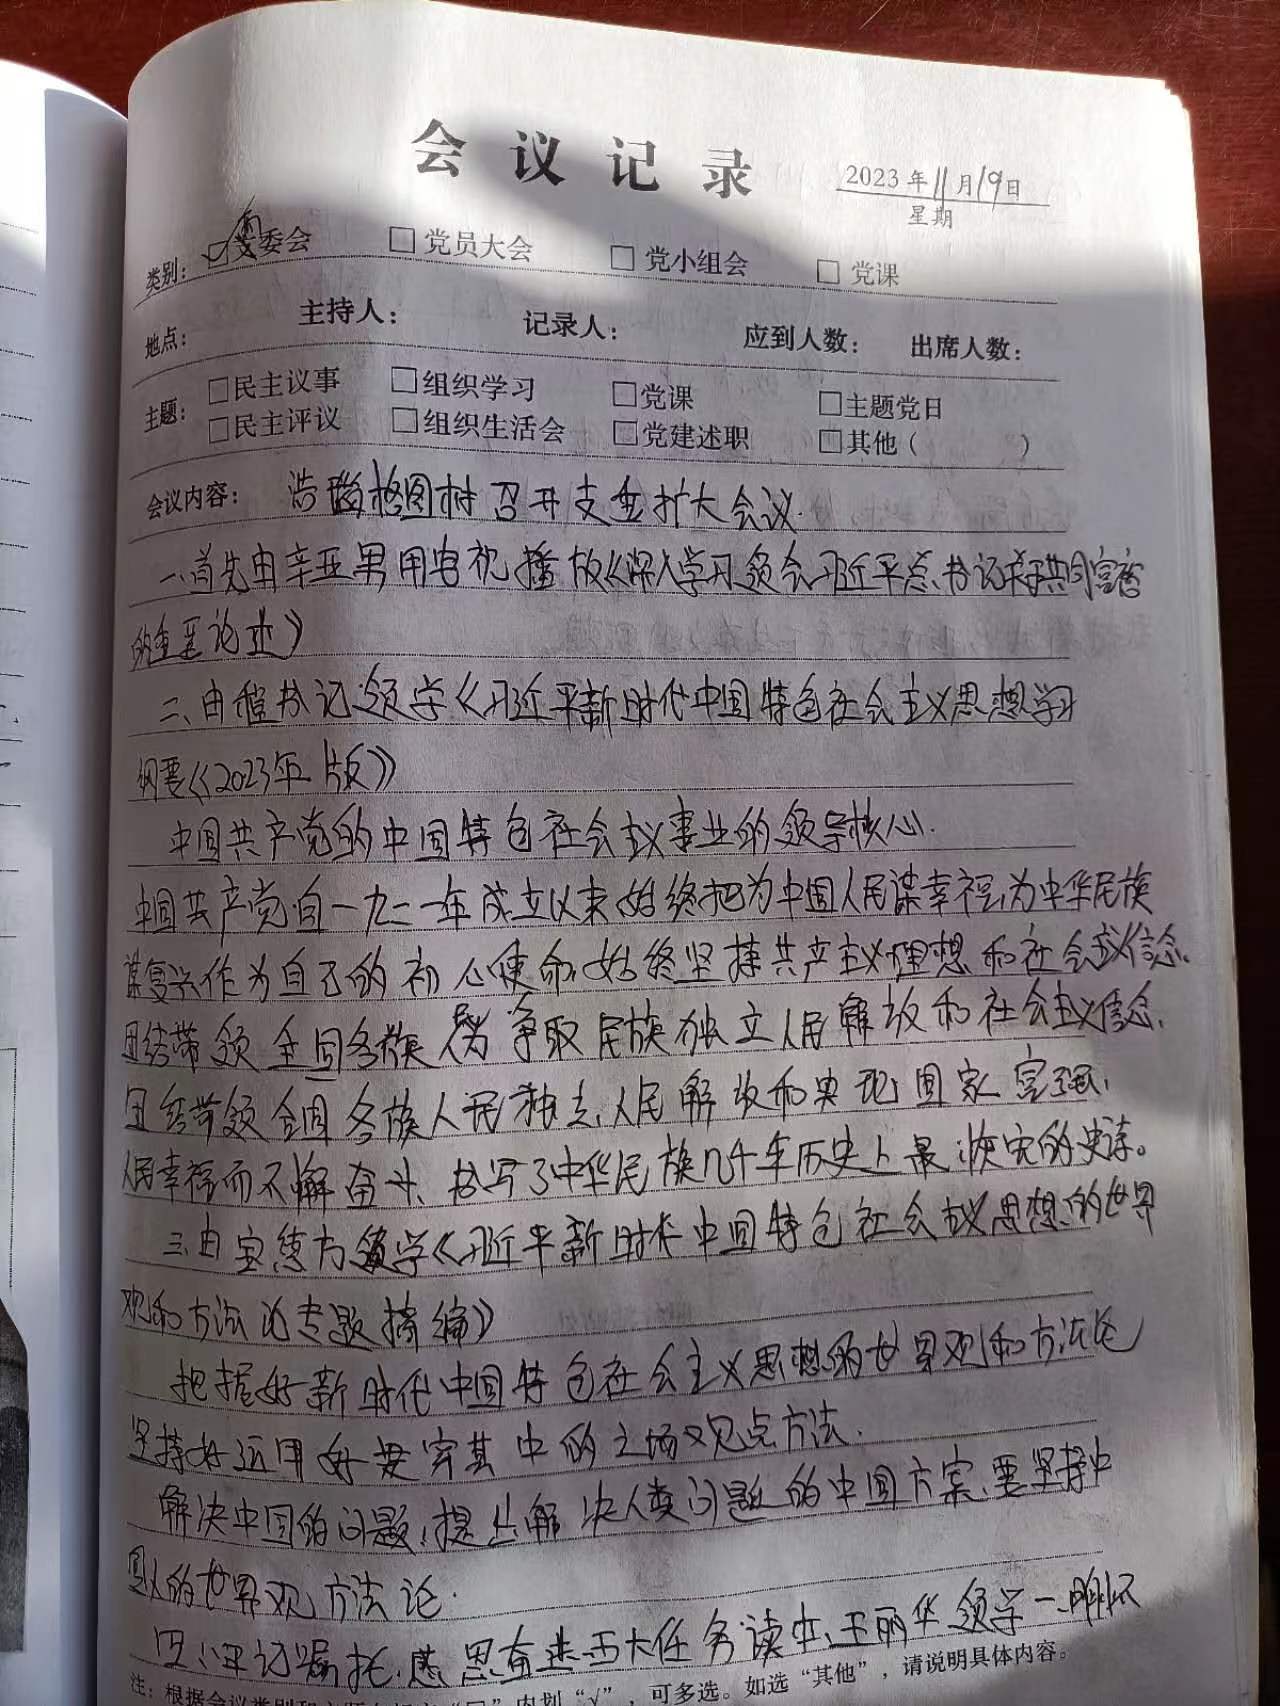 会议记录
2023年11月19日
星期
类别: ☑支委会 □党员大会 □党小组会 □党课
地点: 主持人: 记录人: 应到人数: 出席人数:
主题: □民主议事 □组织学习 □党课 □主题党日
□民主评议 □组织生活会 □党建述职 □其他( )
会议内容: 浩 格图村召开支委扩大会议.
一、首先由辛亚男用电视播放《深入学习领会习近平总书记关于共同富裕
的重要论述》
二、由 书记领学《习近平新时代中国特色社会主义思想学习
纲要《2023年版》
中国共产党的中国特色社会主义事业的领导核心.
中国共产党自一九二一年成立以来始终把为中国人民谋幸福,为中华民族
谋复兴作为自己的初心使命,始终坚持共产主义理想和社会主义信念.
团结带领全国各族人民为争取民族独立人民解放和社会主义信念.
团结带领全国各族人民独立、人民解放和实现国家富强,
人民幸福而不懈奋斗、书写了中华民族几千年历史上最恢宏的史诗。
三、由 领学《习近平新时代中国特色社会主义思想的世界
观和方法论专题摘编》
把握好新时代中国特色社会主义思想的世界观和方法论
坚持好运用好贯穿其中的立场观点方法.
解决中国的问题,提出解决人类问题的中国方案,要坚持中
国人的世界观方法论.
四、牢记嘱托、感恩奋进五大任务读本、王丽华领学一、胸怀
注: 根据会议类别和主题在相应“□”内划“√”,可多选。如选“其他”,请说明具体内容。